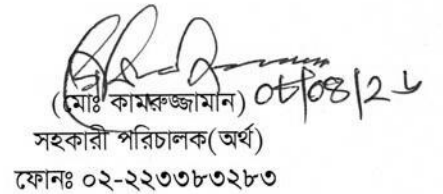 (মোঃ কামরুজ্জামান)
সহকারী পরিচালক(অর্থ)
ফোনঃ ০২-২২৩৩৮৩২৮৩